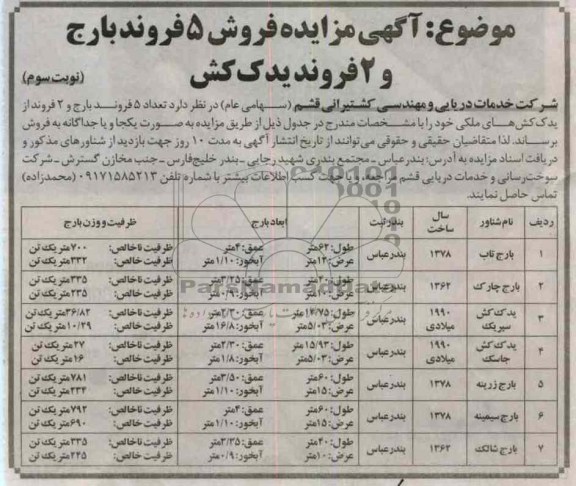 موضوع: آگهی مزایده فروش ۵ فروند بارج
و ۲ فروند یدک کش
(نوبت سوم)
شرکت خدمات دریایی و مهندسی کشتیرانی قشم (سهامی عام) در نظر دارد تعداد ۵ فروند بارج و ۲ فروند از
یدک کش های ملکی خود را با مشخصات مندرج در جدول ذیل از طریق مزایده به صورت یکجا و یا جداگانه به فروش
برساند. لذا متقاضیان حقیقی و حقوقی می توانند از تاریخ انتشار آگهی به مدت ۱۰ روز جهت بازدید از شناورهای مذکور و
دریافت اسناد مزایده به آدرس: بندرعباس ـ مجتمع بندری شهید رجایی ـ بندر خلیج فارس ـ جنب مخازن گسترش ـ شرکت
سوخت رسانی و خدمات دریایی قشم مراجعه و یا جهت کسب اطلاعات بیشتر با شماره تلفن ۰۹۱۷۱۵۸۵۲۱۳ (محمدزاده)
تماس حاصل نمایند.
ردیف نام شناور سال ساخت بندر ثبت ابعاد بارج ظرفیت و وزن بارج
۱ بارج تاب ۱۳۷۸ بندرعباس طول: ۶۲متر عمق: ۴متر ظرفیت ناخالص: ۷۰۰متریک تن
عرض: ۱۴متر آبخور: ۱/۱۰متر ظرفیت خالص: ۳۳۲متریک تن
۲ بارج چارک ۱۳۶۲ بندرعباس طول: عمق: ۳/۲۵متر ظرفیت ناخالص: ۳۳۵متریک تن
عرض: آبخور: ۰/۹متر ظرفیت خالص: ۲۳۵متریک تن
۳ یدک کش سیریک ۱۹۹۰ میلادی بندرعباس طول: ۱۴/۷۵متر عمق: ۲/۳۰متر ظرفیت ناخالص: ۳۶/۸۲متریک تن
عرض: ۵/۰۳متر آبخور: ۱۶/۸متر ظرفیت خالص: ۱۰/۲۹متریک تن
۴ یدک کش جاسک ۱۹۹۰ میلادی بندرعباس طول: ۱۵/۹۳متر عمق: ۲/۳۰متر ظرفیت ناخالص: ۲۷متریک تن
عرض: ۵/۰۳متر آبخور: ۱/۸متر ظرفیت خالص: ۱۶متریک تن
۵ بارج زرینه ۱۳۷۸ بندرعباس طول: ۶۰متر عمق: ۳/۵۰متر ظرفیت ناخالص: ۷۸۱متریک تن
عرض: ۱۵متر آبخور: ۱/۱۰متر ظرفیت خالص: ۲۳۴متریک تن
۶ بارج سیمینه ۱۳۷۸ بندرعباس طول: ۶۰متر عمق: ۴متر ظرفیت ناخالص: ۷۹۲متریک تن
عرض: ۱۵متر آبخور: ۱/۱۰متر ظرفیت خالص: ۶۹۰متریک تن
۷ بارج شالک ۱۳۶۲ بندرعباس طول: ۴۰متر عمق: ۳/۳۵متر ظرفیت ناخالص: ۳۳۵متریک تن
عرض: ۱۰متر آبخور: ۰/۹متر ظرفیت خالص: ۲۴۵متریک تن